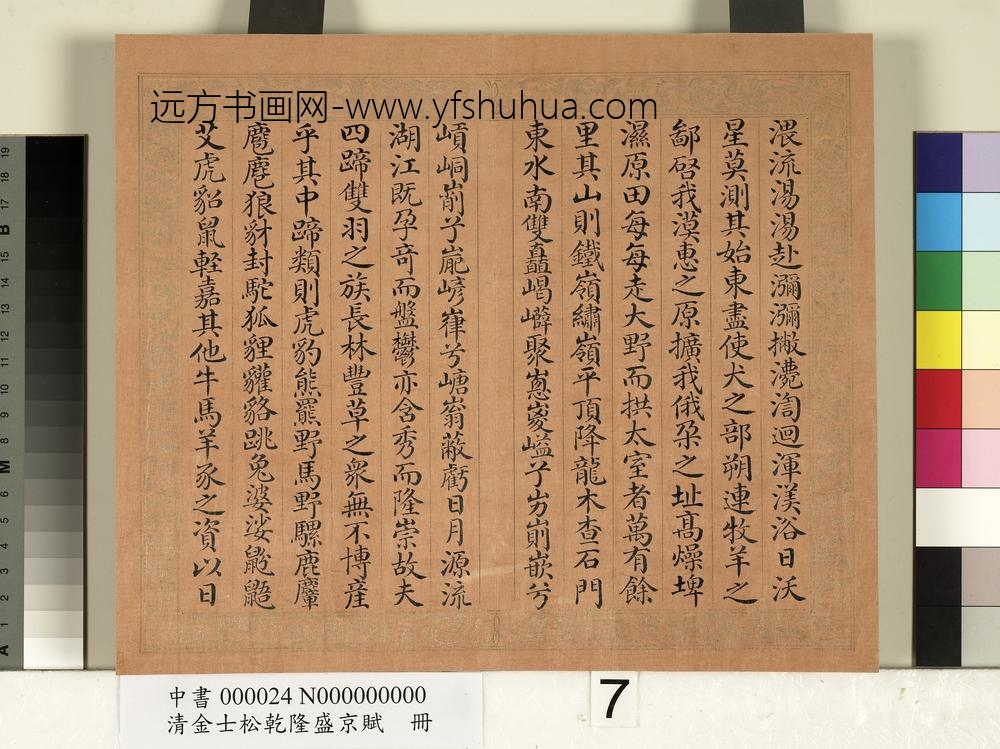 远方书画网-www.yfshuhua.com
渨流湯湯赴瀰瀰撇淘迴渾渼浴日沃
星莫測其始東盡使犬之部朔連牧羊之
鄙啓我漠惠之原擴我俄朶之址高燥埤
濕原田每每走大野而拱太室者萬有餘
里其山則鐵嶺繡嶺平頂降龍木查石門
東水南雙矗崵聚嵏嵫屴崱嵌兮
峒崱屴巃嵂兮嵣蔽虧日月源流
湖江既孕奇而盤鬱亦含秀而隆崇故夫
四蹄雙羽之族長林豐草之衆無不博產
乎其中蹄類則虎豹熊羆野馬野騾鹿麞
麕麅狼豺封駝狐狸貛貉跳兔婆娑鼢鼯
艾虎貂鼠輕嘉其他牛馬羊豕之資以日
中書 000024 N000000000
清金士松乾隆盛京賦 冊
7
19
18
17
B
15
14
13
12
11
10
9
8
M
6
5
4
3
2
1
A